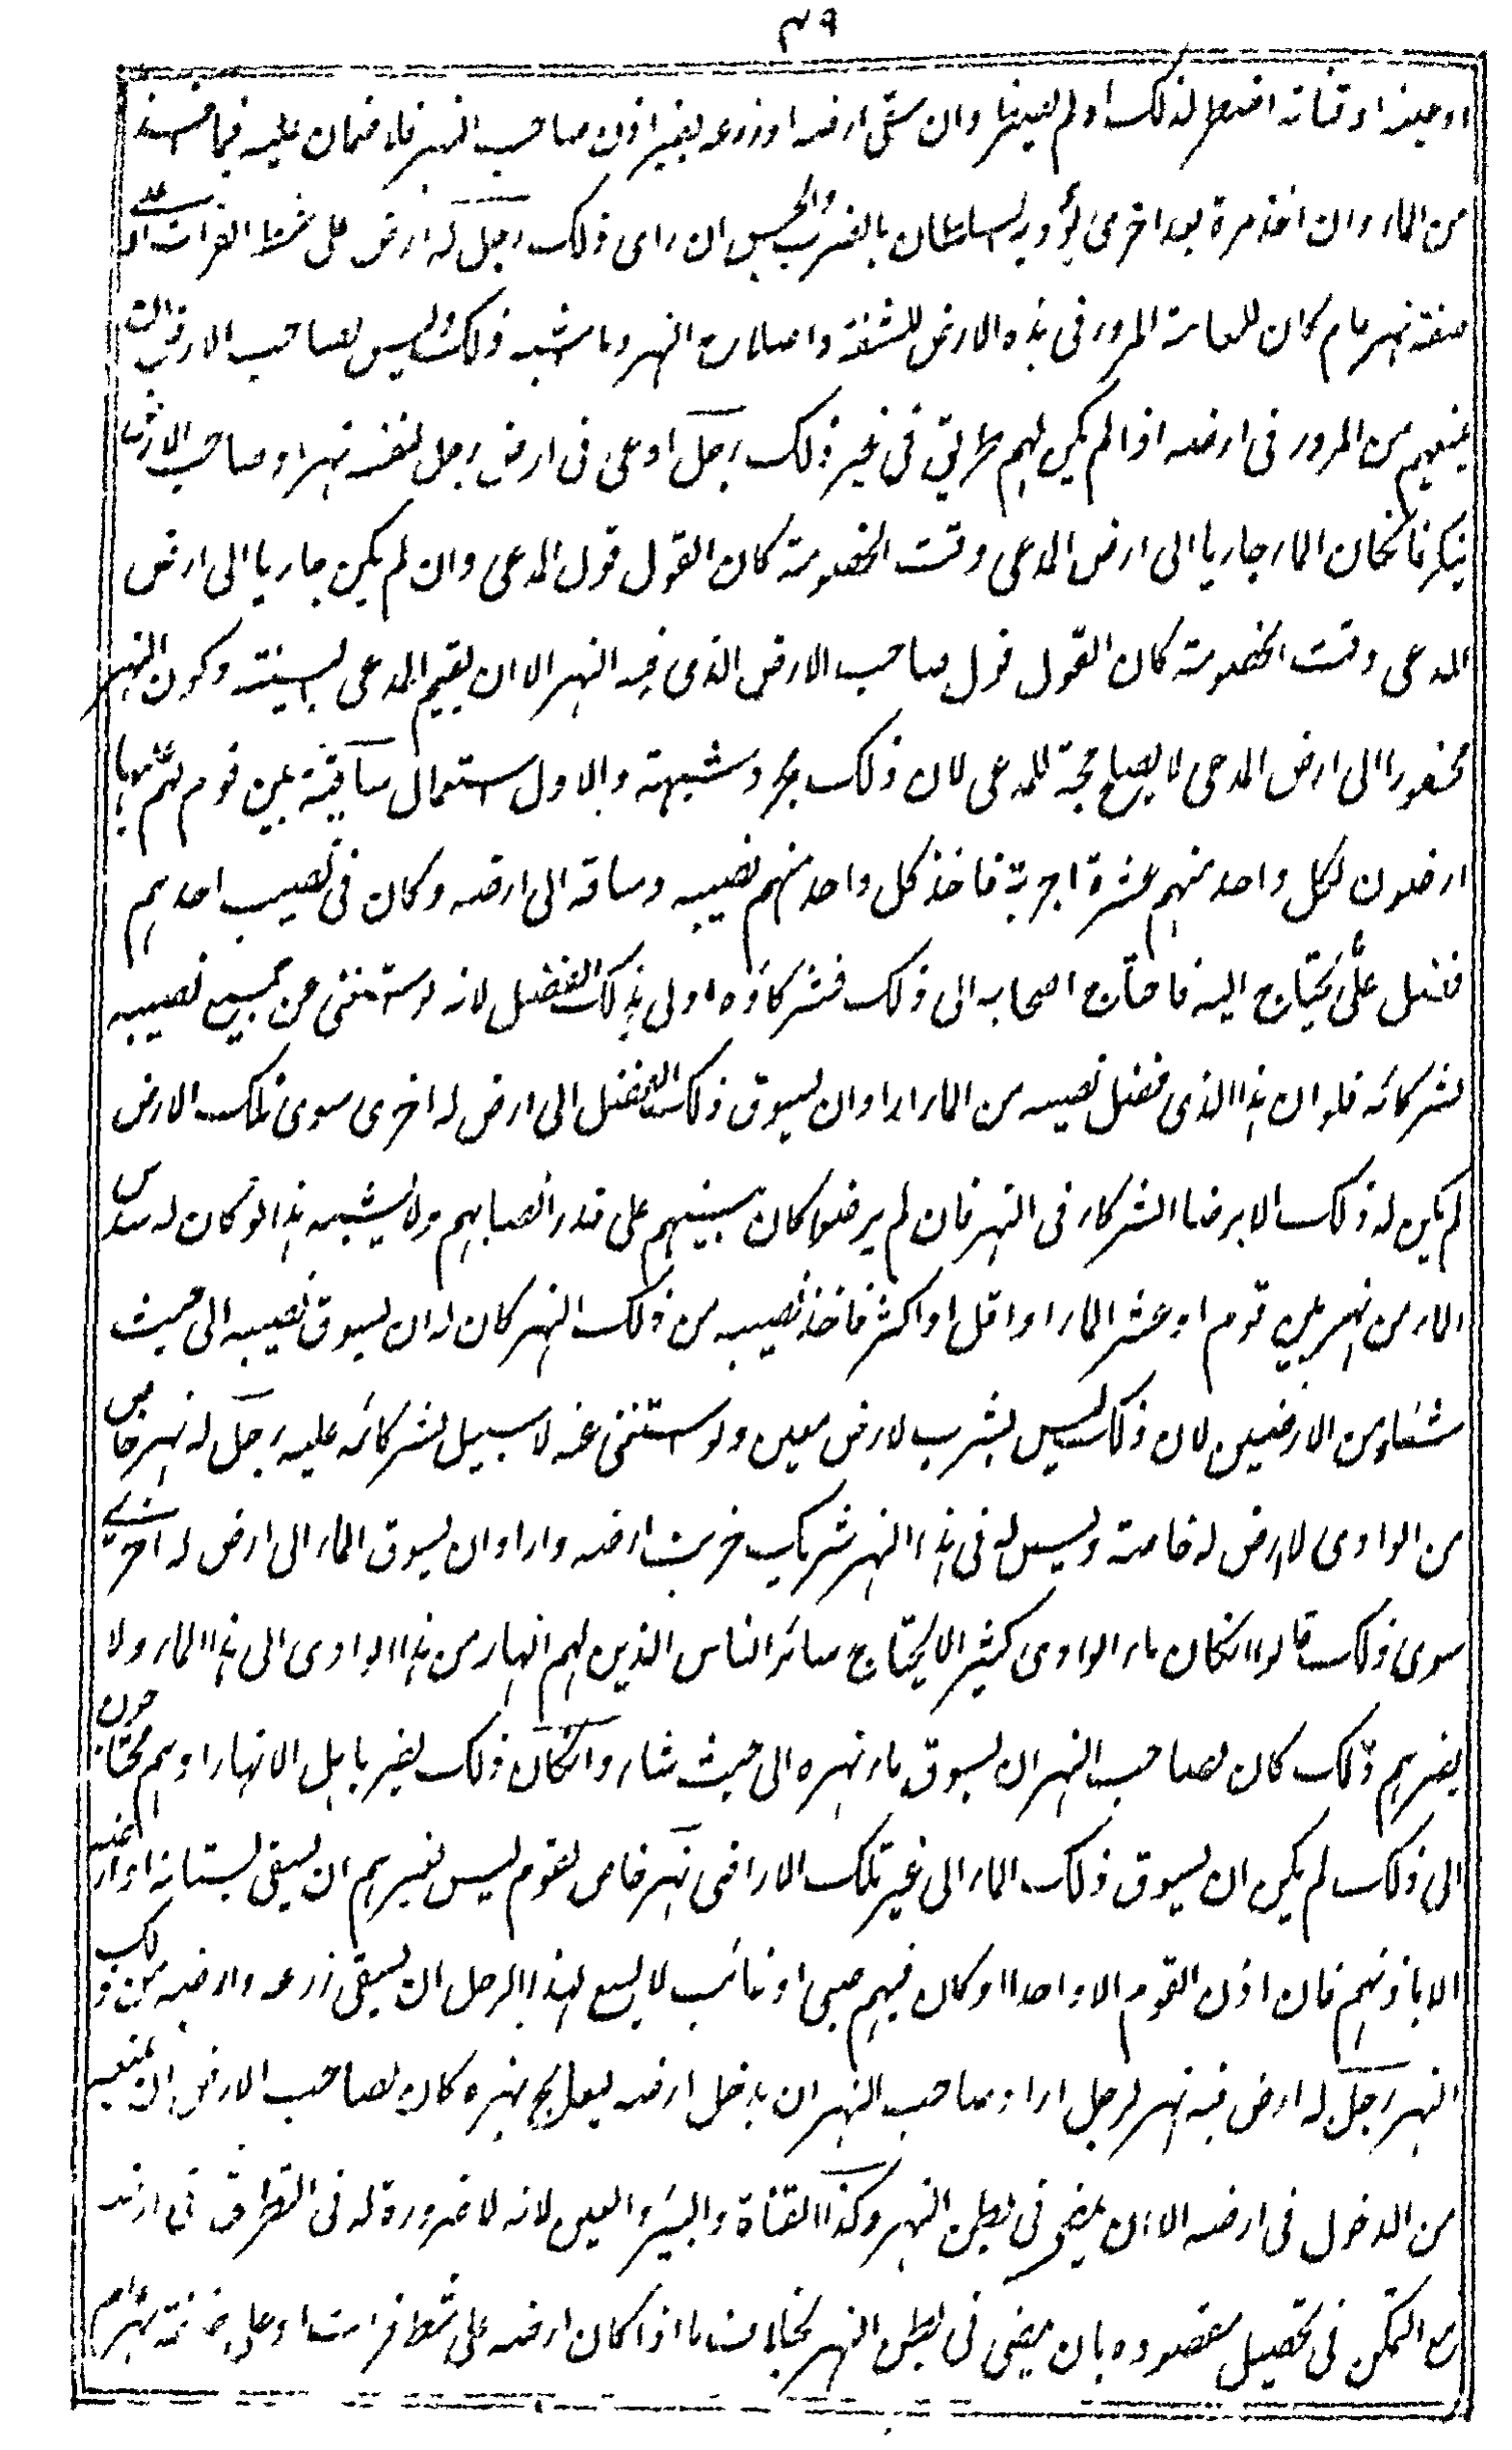 ٤٩
او عينه او قناته اضطر لذلك او لم يضطر وان سقى ارضه او زرعه بغير اذن صاحب النهر فلا ضمان عليه فيما اخذ
من الماء وان اخذ مرة بعد اخرى يؤدبه السلطان بالضرب والحبس ان راى ذلك رجل له ارض على شط الفرات او على
ضفة نهر عام كان للعامة المرور فى هذه الارض للشفة واصلاح النهر وما اشبه ذلك وليس لصاحب الارض ان
يمنعهم من المرور فى ارضه اذا لم يكن لهم طريق فى غير ذلك رجل ادعى فى ارض رجل لنفسه نهرا وصاحب الارض
ينكر فان كان الماء جاريا الى ارض المدعى وقت الخصومة كان القول قول المدعى وان لم يكن جاريا الى ارض
المدعى وقت الخصومة كان القول قول صاحب الارض الذى فيه النهر الا ان يقيم المدعى البينة وكون النهر
محفورا الى ارض المدعى لا يصلح حجة للمدعى لان ذلك مجرد شبهة والاول استعمال ساقية بين قوم لهم عليها
ارضون لكل واحد منهم عشرة اجربة فاخذ كل واحد منهم نصيبه وساقه الى ارضه وكان فى نصيب احدهم
فضل عما يحتاج اليه فاحتاج اصحابه الى ذلك فشركاؤه اولى بذلك الفضل لانه لو استغنى عن جميع نصيبه
لشركائه فلو ان هذا الذى فضل نصيبه من الماء اراد ان يسوق ذلك الفضل الى ارض له اخرى سوى تلك الارض
لم يكن له ذلك الا برضا الشركاء فى النهر فان لم يرضوا كان بينهم على قدر انصبائهم ولا يشبه هذا لو كان له سدس
الماء من نهر بين قوم او عشر الماء او اقل او اكثر فاخذ نصيبه من ذلك النهر كان له ان يسوق نصيبه الى حيث
شاء من الارضين لان ذلك ليس بشرب لارض معين ولو استغنى عنه لا سبيل لشركائه عليه رجل له نهر خاص
من الوادى لارض له خاصة وليس له فى هذا النهر شريك خربت ارضه واراد ان يسوق الماء الى ارض له اخرى
سوى ذلك قالوا ان كان ماء الوادى كثيرا لا يحتاج سائر الناس الذين لهم انهار من هذا الوادى الى هذا الماء ولا
يضرهم ذلك كان لصاحب النهر ان يسوق ماء نهره الى حيث شاء وان كان ذلك يضر باهل الانهار او هم محتاجون
الى ذلك لم يكن ان يسوق ذلك الماء الى غير تلك الاراضى نهر خاص لقوم ليس لغيرهم ان يسقى بستانه او ارضه
الا باذنهم فان اذن القوم الا واحدا او كان فيهم صبى او غائب لا يسع لهذا الرجل ان يسقى زرعه وارضه من ذلك
النهر رجل له ارض فيه نهر لرجل اراد صاحب النهر ان يدخل ارضه ليعالج نهره كان لصاحب الارض ان يمنعه
من الدخول فى ارضه الا ان يمضى فى بطن النهر وكذا القناة والبئر والعين لانه لا ضرورة له فى التطرق فى ارضه
مع التمكن فى تحصيل مقصوده بان يمضى فى بطن النهر بخلاف ما اذا كان ارضه على شط فرات او على ضفة نهر عام